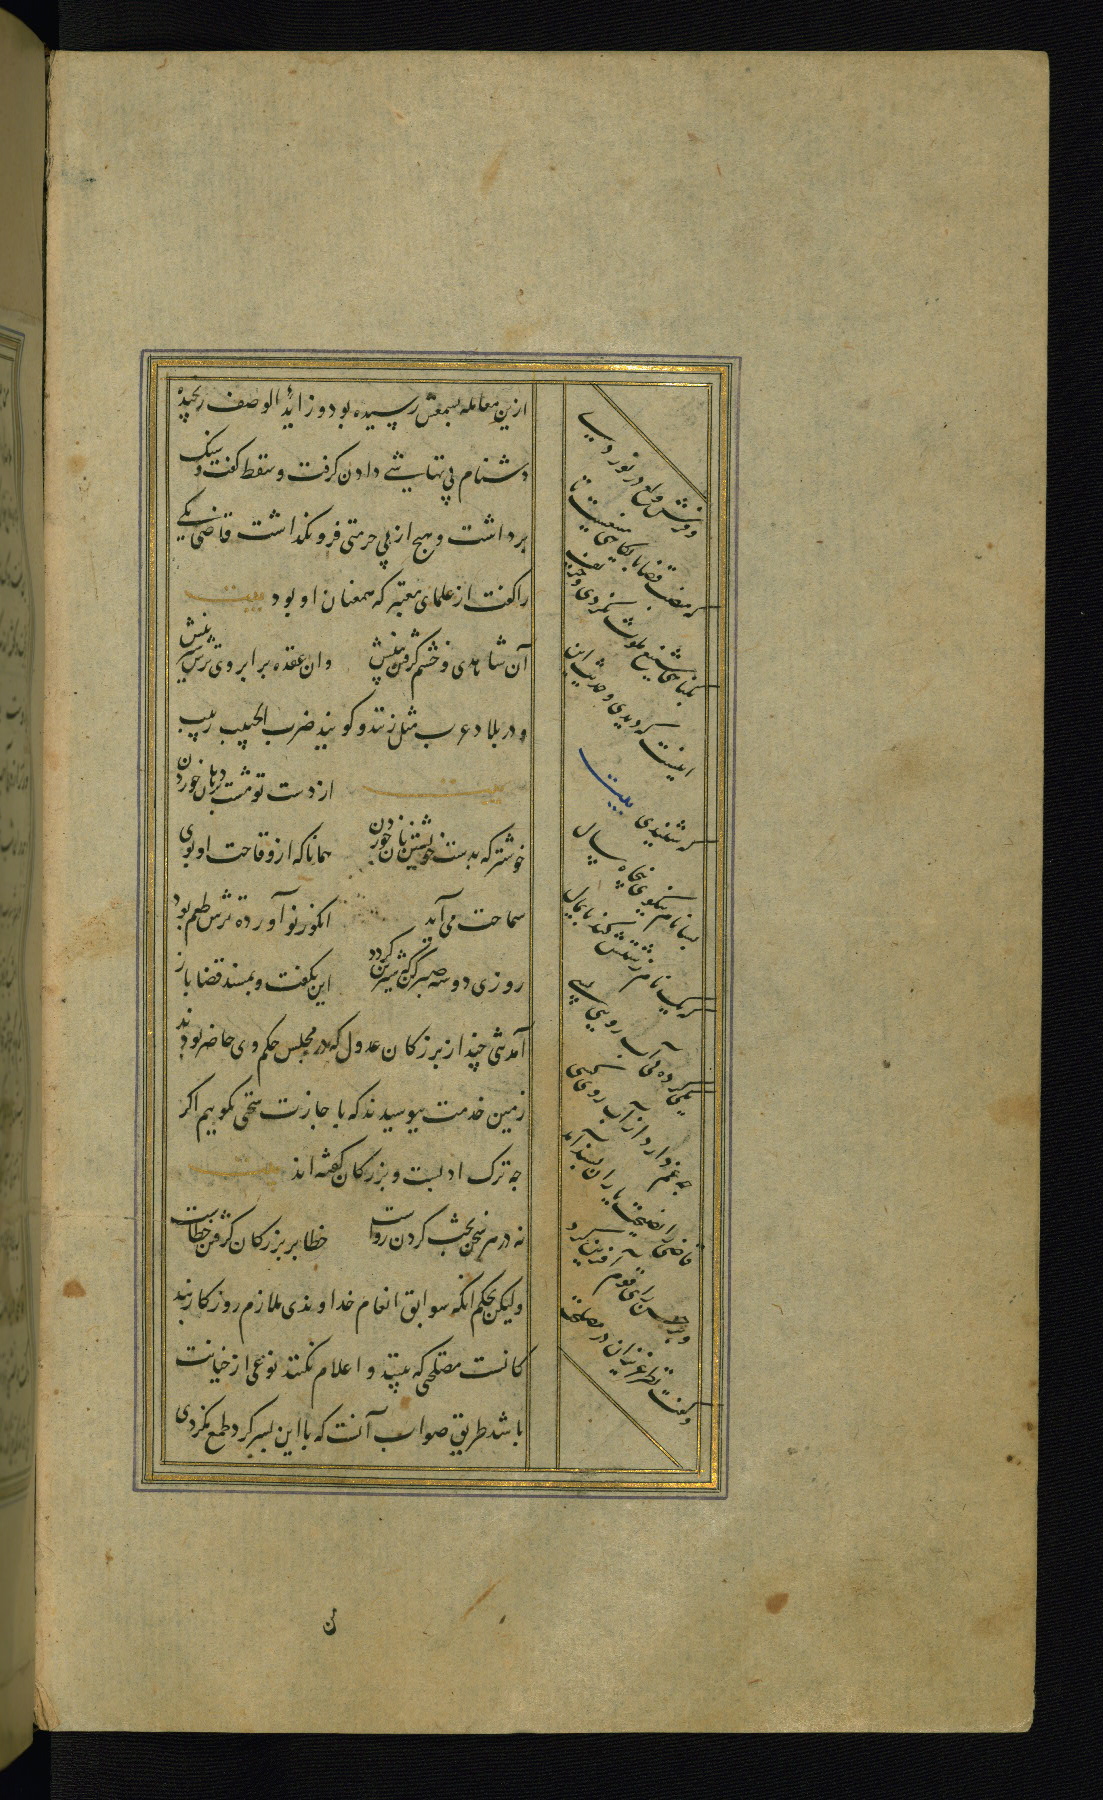 ازین معامله بسمعش رسیده بود و زاید الوصف رنجیده
دشنام بی تحاشی دادن گرفت و سقط گفت و سنگ
برداشت و هیچ از بی حرمتی فرو نگذاشت قاضی یکی
را گفت از علمای معتبر که همعنان او بود بیت
آن شاهدی و خشم گرفتن بینش وان عقده بر ابروی ترش شیرینش
و در بلاد عرب مثل زنند و گویند ضرب الحبیب زبیب
بیت از دست تو مشت بر دهان خوردن
خوشتر که بدست خویشتن نان خوردن همانا که از وقاحت او بوی
سماحت می آید انگور نو آورده ترش طعم بود
روزی دو سه صبر کن که شیرین گردد این بگفت و بمسند قضا باز
آمد تنی چند از بزرگان عدول که در مجلس حکم وی حاضر بودند
زمین خدمت ببوسیدند که با جازت سخنی بگوییم اگر
چه ترک ادبست و بزرگان گفته اند بیت
نه در هر سخن بحث کردن رواست خطا بر بزرگان گرفتن خطاست
ولیکن بحکم آنکه سوابق انعام خداوندی ملازم روزگار بند
گانست مصلحتی که بینند و اعلام نکنند نوعی از خیانت
باشد طریق صواب آنست که با این پسر گرد طمع نگردی
و فرش ولع در نوردی
که منصب قضا پایگاهی منیعست تا
بگناهی شنیع ملوث نگردی و حریف
اینست که دیدی و حدیث این
که شنیدی بیت
بسا نام نیکوی پنجاه سال
که یک نام زشتش کند پایمال
یکی کرده بی آب رویی بسی
چه غم دارد از آب روی کسی
قاضی را نصیحت یاران پسند آمد
و بر حسن رای قوم آفرین کرد
و گفت نظر عزیزان در مصلحت
ن